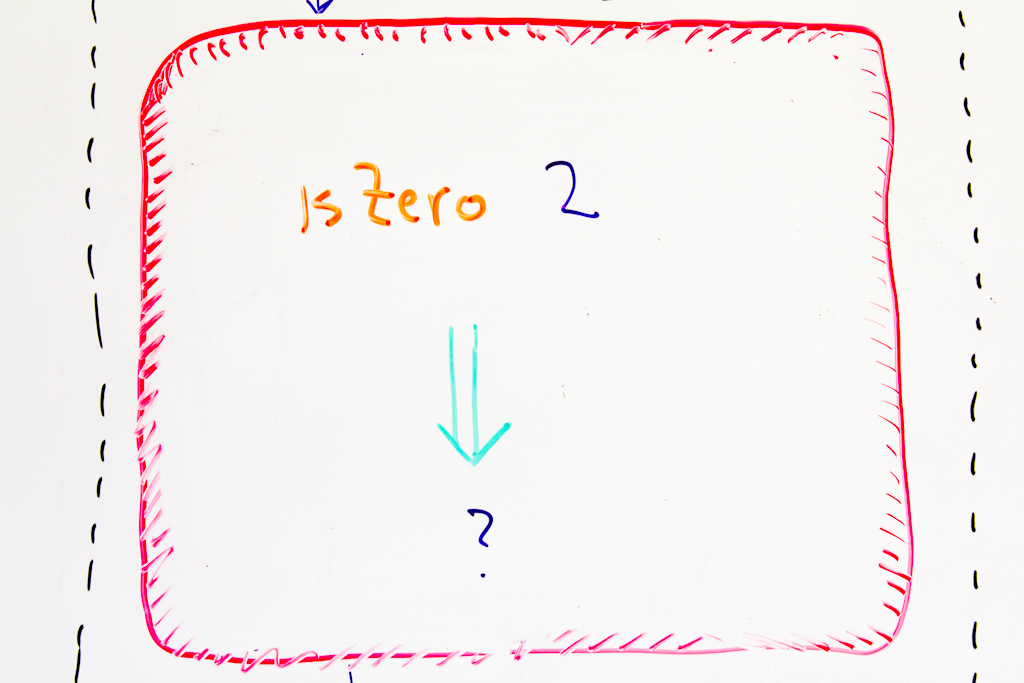 isZero 2
?